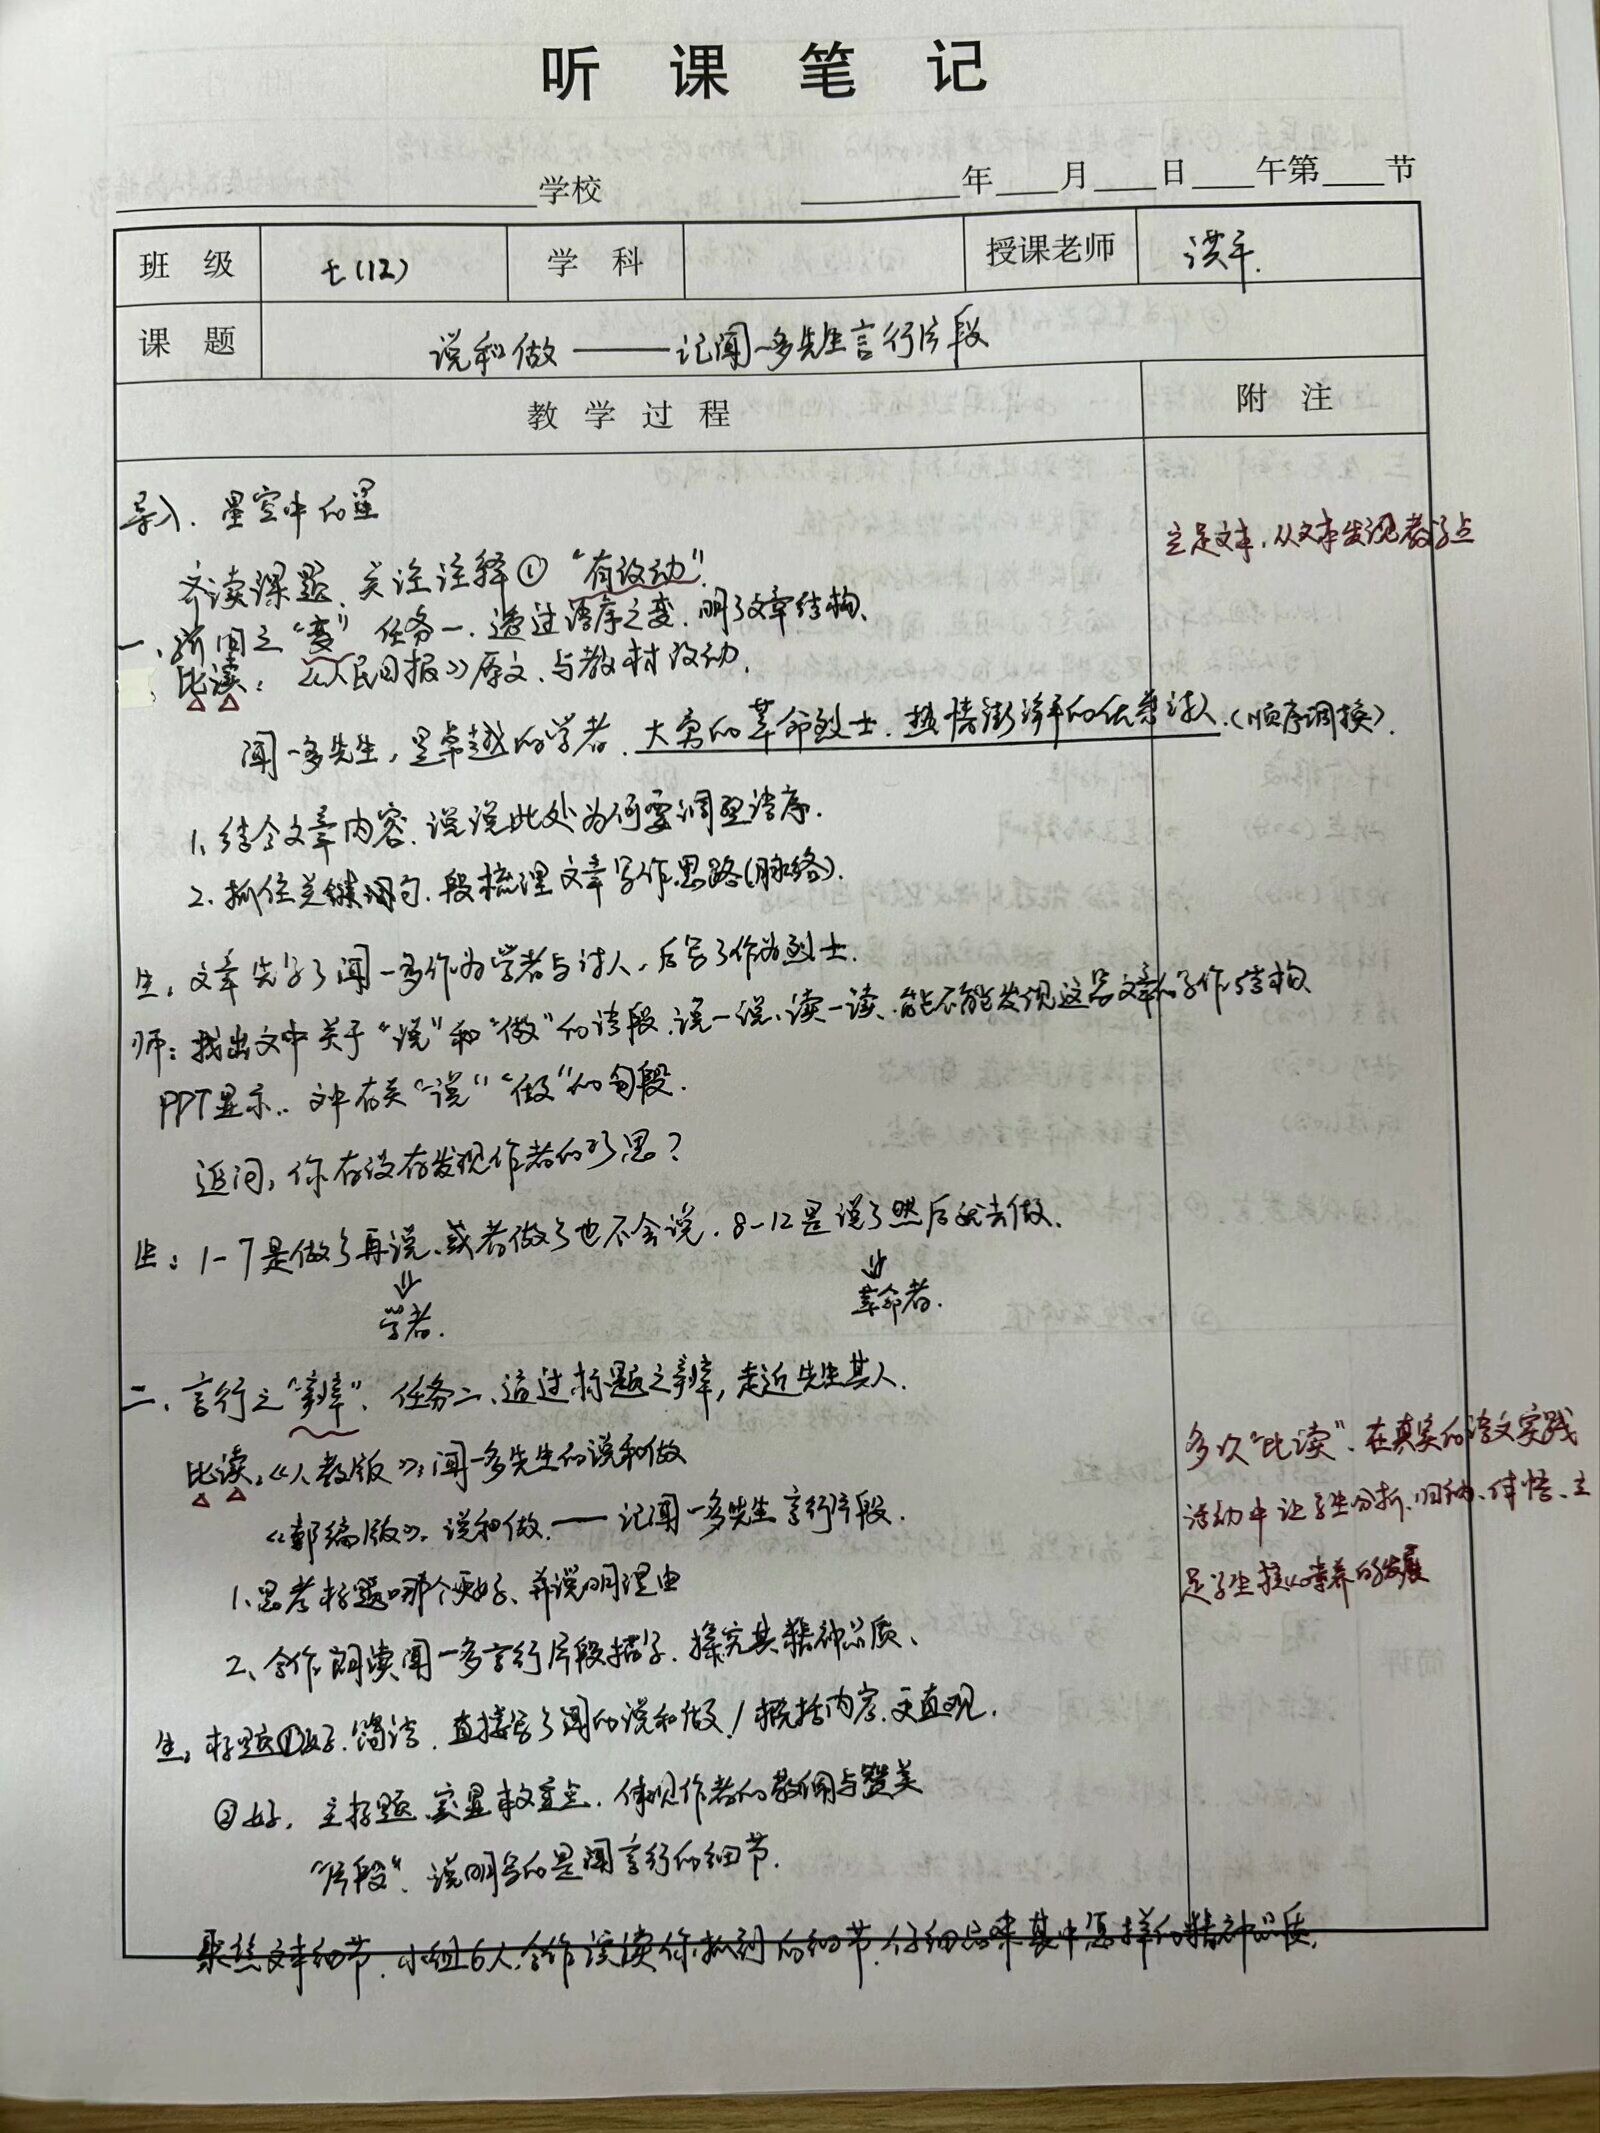 听课笔记
学校 年 月 日 午第 节
班级 七(12) 学科 授课老师 洪平.
课题 说和做——记闻一多先生言行片段
教学过程 附注
导入. 星空中的星
立足文本, 从文本发现教学点
齐读课题, 关注注释① “有改动”.
一、 之“变” 任务一. 透过语序之变. 明了文章结构、
比读: 《人民日报》原文、与教材改动.
闻一多先生, 是卓越的学者. 大勇的革命烈士. 热情澎湃的优秀诗人.(顺序调换).
1、结合文章内容. 说说此处为何要调整语序.
2、抓住关键词句. 段梳理文章写作思路(脉络).
生: 文章先写了闻一多作为学者与诗人, 后写了作为烈士.
师: 找出文中关于“说”和“做”的语段. 说一说、读一读、能不能发现这写文章的写作结构、
PPT显示: 文中有关“说”“做”的句段.
追问: 你有没有发现作者的巧思?
生: 1-7是做了再说、或者做了也不会说. 8-12是说了然后就去做.
学者. 革命者.
二、言行之“辨”. 任务二、透过标题之辨, 走近先生其人.
多次“比读”、在真实的语文实践
比读: 《人教版》: 闻一多先生的说和做
活动中让学生分析、归纳、体悟、立
《部编版》: 说和做.——记闻一多先生言行片段.
足学生核心素养的发展
1、思考标题哪个更好、并说明理由
2、合作朗读闻一多言行片段描写. 探究其精神品质、
生: 标题①好. 简洁. 直接写了闻的说和做/概括内容. 更直观.
②好. 主标题. 突显 重点. 体现作者的敬佩与赞美
“片段”. 说明写的是闻言行的细节.
聚焦文本细节. 小组6人. 合作读读你抓到的细节. 仔细品味其中怎样的精神品质.